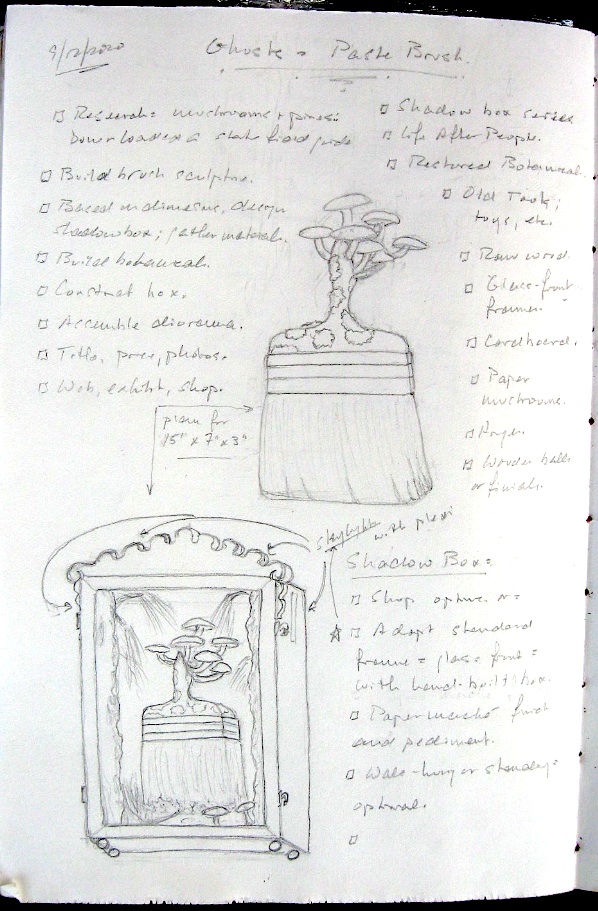 9/12/2020
Ghosts = Paste Brush.
□ Research = mushrooms + pines:
Downloaded a state field guide
□ Build brush sculpture.
□ Based on dimensions, design
shadowbox; gather materials.
□ Build botanicals.
□ Construct box.
□ Assemble diorama.
□ Title, price, photos.
□ Web, exhibit, shop.
plan for
15" x 7" x 3"
□ Shadow box series
□ Life After People.
□ Restored Botanical.
□ Old Tools;
toys, etc.
□ Raw wood.
□ Glass-front
frames.
□ Cardboard.
□ Paper
mushrooms.
□ Wooden balls
or finials.
skylights with plexi
Shadow Box =
□ Shop options
☆ □ Adapt standard
frame = glass front =
with hand-built box.
□ Paper maché
and pediment.
□ Wall-hung or standing =
optional.
□